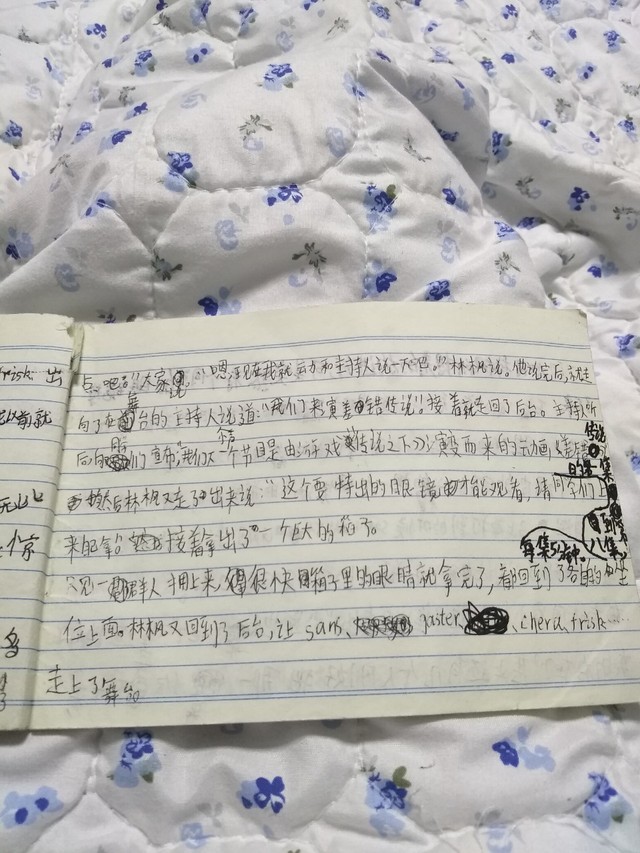 点吧?"大家说。"嗯,现在我就去力和主持人说一下吧。"林枫说。他说完后,就走
向了在舞台的主持人说道:"我们来演羊错传说。"接着就走回了后台。主持人听
后向同们宣布,"我们下一个节目是由游戏《传说之下》演变而来的动画《羊错传说》
的第一集
然后林枫又走了出来说:"这个要特出的眼镜才能观看,请同学们上
来配拿。"接着拿出了一个巨大的箱子。
每集5分钟。
八集。
只见一群人拥上来,很快箱子里的眼睛就拿完了,都回到了各自的座
位上面。林枫又回到了后台,让 sans、gaster、chera、frisk……
走上了舞台
risk 出
以前就
个惊